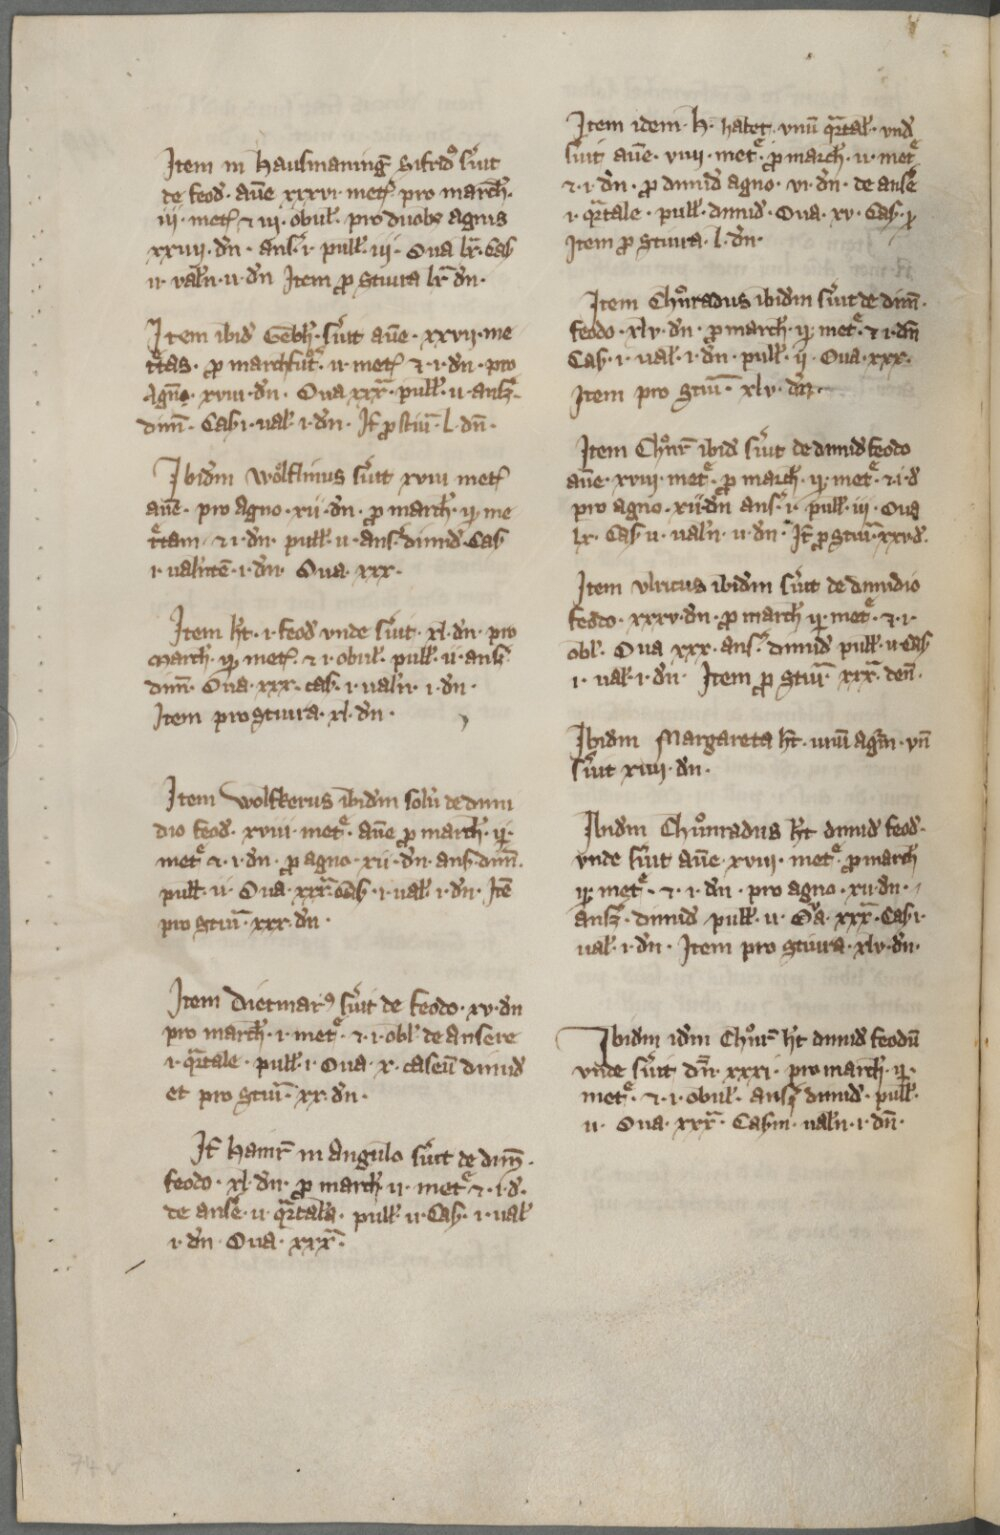 Item in Hausmaning Sifrid' s'uit
de feod. aūe xxxvi met. pro march.
iij. met. & iij. obul. pro duobz agnis
xxiiij. dn. ans. i. pull. iij. Oua lx. Cas
ii. val'n. ii. dn Item p stiura lx dn.
Item ibid Gebh. s'uit aūe. xxvij. me
ttas. p marchfut. ii. met. & i. dn. pro
Agno. xviii. dn. Oua xxx. pull. ii. ans.
dim. Cas i. ual. i. dn. It p stiur L. dn.
Ibidm Wolflinus s'uit xviii met.
aūe. pro agno. xii. dn. p march. ij. me
ttam & i. dn. pull. ii. ans. dimid. Cas
i. ualntē. i. dn. Oua. xxx.
Item ht. i. feod vnde s'uit. xl. dn. pro
March. ij. met. & i. obul. pull. ii. ans.
dim. Oua. xxx. cas. i. ualn. i. dn.
Item pro stiura. xl. dn.
Item Wolfkerus ibidm solu de dimi
dio feod. xviii. met. aūe p march. ij.
met. & i. dn. p agno. xii. dn. ans. dim.
pull. ii. Oua. xxx. Cas. i. ual. i. dn. Itē
pro stiur. xxx. dn.
Item Dietmar9 s'uit de feodo. xv. dn
pro march. i. met. & i. obl. de ansere
i. qrtale. pull. i. Oua. x. caseū dimid
et pro stiur. xx. dn.
It Hainr in Angulo s'uit de dim.
feodo. xl. dn. p march. ii. met. & i. d.
de anse. ii. qrtalia. pull. ii. Cas. i. ual
i. dn. Oua. xxx.
Item idem. H. habet. vnū qrtal. vnd
s'uit aūe. viiij. met. p march. ii. met
& i. dn. p dimid agno. vi. dn. de anse
i. qrtale. pull. dimid. Oua. xv. Cas.
Item p stiura. L. dn.
Item Chunradus ibidm s'uit de dim.
feodo. xlv. dn. p march. ij. met. & i. dn
Cas. i. ual. i. dn. pull. ij. Oua. xxx.
Item pro stiur. xlv. dn.
Item Chunr ibid s'uit de dimid feodo
aūe. xviii. met. p march. ij. met. & i. d
pro agno. xii. dn ans. i. pull. iij. Oua
lx. Cas. ii. ualn. ii. dn. It p stiur. xxv. d.
Item vlricus ibidm s'uit de dimidio
feodo. xxxv. dn. p march ij. met. & i.
obl. Oua xxx. ans. dimid pull. ii. Cas
i. ual. i. dn. Item p stiur xxx. den.
Ibidm Margareta ht. unū agm. vn
s'uit xiiij. dn.
Ibidm Chunradus ht dimid feod.
vnde s'uit aūe. xviii. met. p march
ij. met. & i. dn. pro agno. xii. dn.
ans. dimid pull. ii. Oua. xxx. Cas i.
ual. i. dn. Item pro stiura. xlv. dn.
Ibidm idm Chunr ht dimid feodū
vnde s'uit dn. xxxi. pro march. ij.
met. & i. obul. ans. dimid. pull.
ii. Oua. xxx. Cas in. ualn. i. dn.
74 v